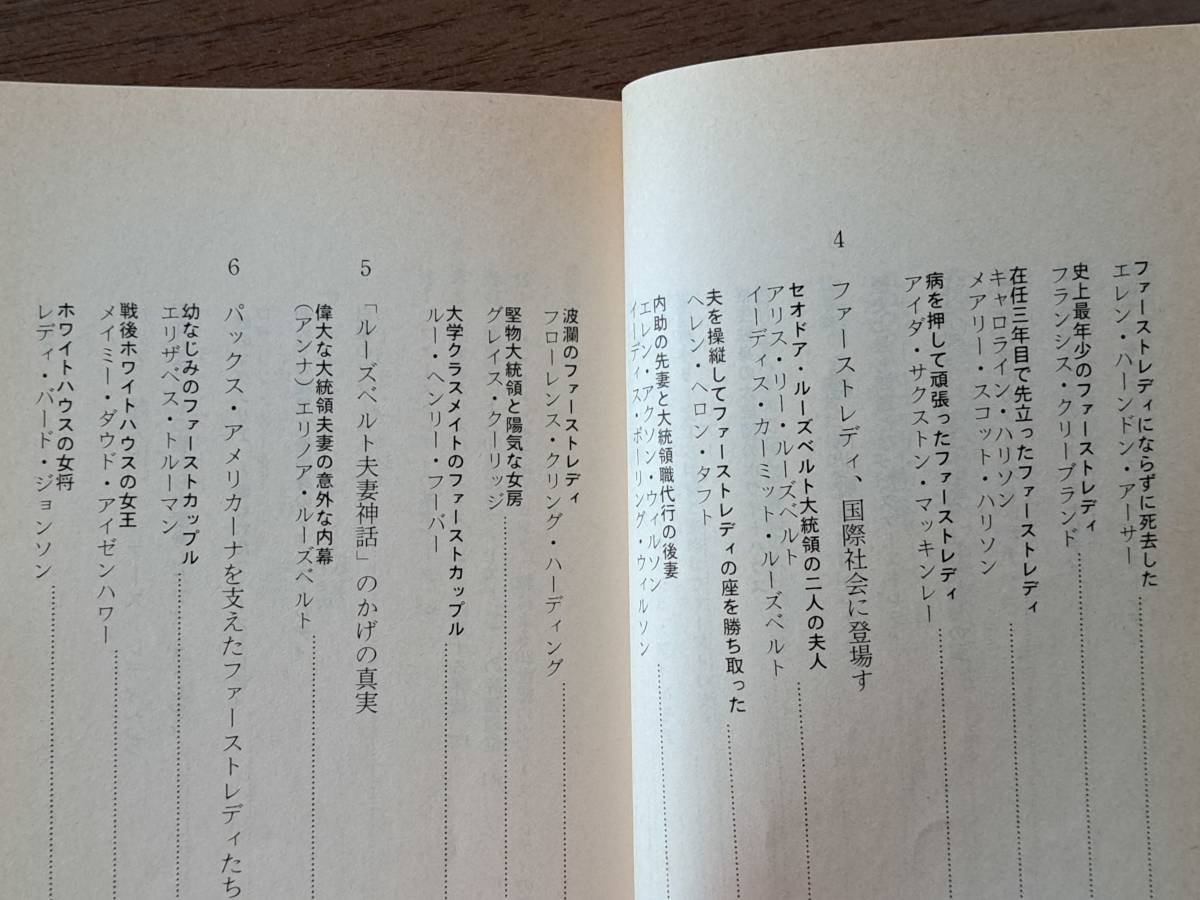 ファーストレディにならずに死去した
エレン・ハーンドン・アーサー
史上最年少のファーストレディ
フランシス・クリーブランド
在任三年目で先立ったファーストレディ
キャロライン・ハリソン
メアリー・スコット・ハリソン
病を押して頑張ったファーストレディ
アイダ・サクストン・マッキンレー
4 ファーストレディ、国際社会に登場す
セオドア・ルーズベルト大統領の二人の夫人
アリス・リー・ルーズベルト
イーディス・カーミット・ルーズベルト
夫を操縦してファーストレディの座を勝ち取った
ヘレン・ヘロン・タフト
内助の先妻と大統領職代行の後妻
エレン・アクソン・ウィルソン
イーディス・ボーリング・ウィルソン
波瀾のファーストレディ
フローレンス・クリング・ハーディング
堅物大統領と陽気な女房
グレイス・クーリッジ
大学クラスメイトのファーストカップル
ルー・ヘンリー・フーバー
5 「ルーズベルト夫妻神話」のかげの真実
偉大な大統領夫妻の意外な内幕
(アンナ)エリノア・ルーズベルト
6 パックス・アメリカーナを支えたファーストレディたち
幼なじみのファーストカップル
エリザベス・トルーマン
戦後ホワイトハウスの女王
メイミー・ダウド・アイゼンハワー
ホワイトハウスの女将
レディ・バード・ジョンソン